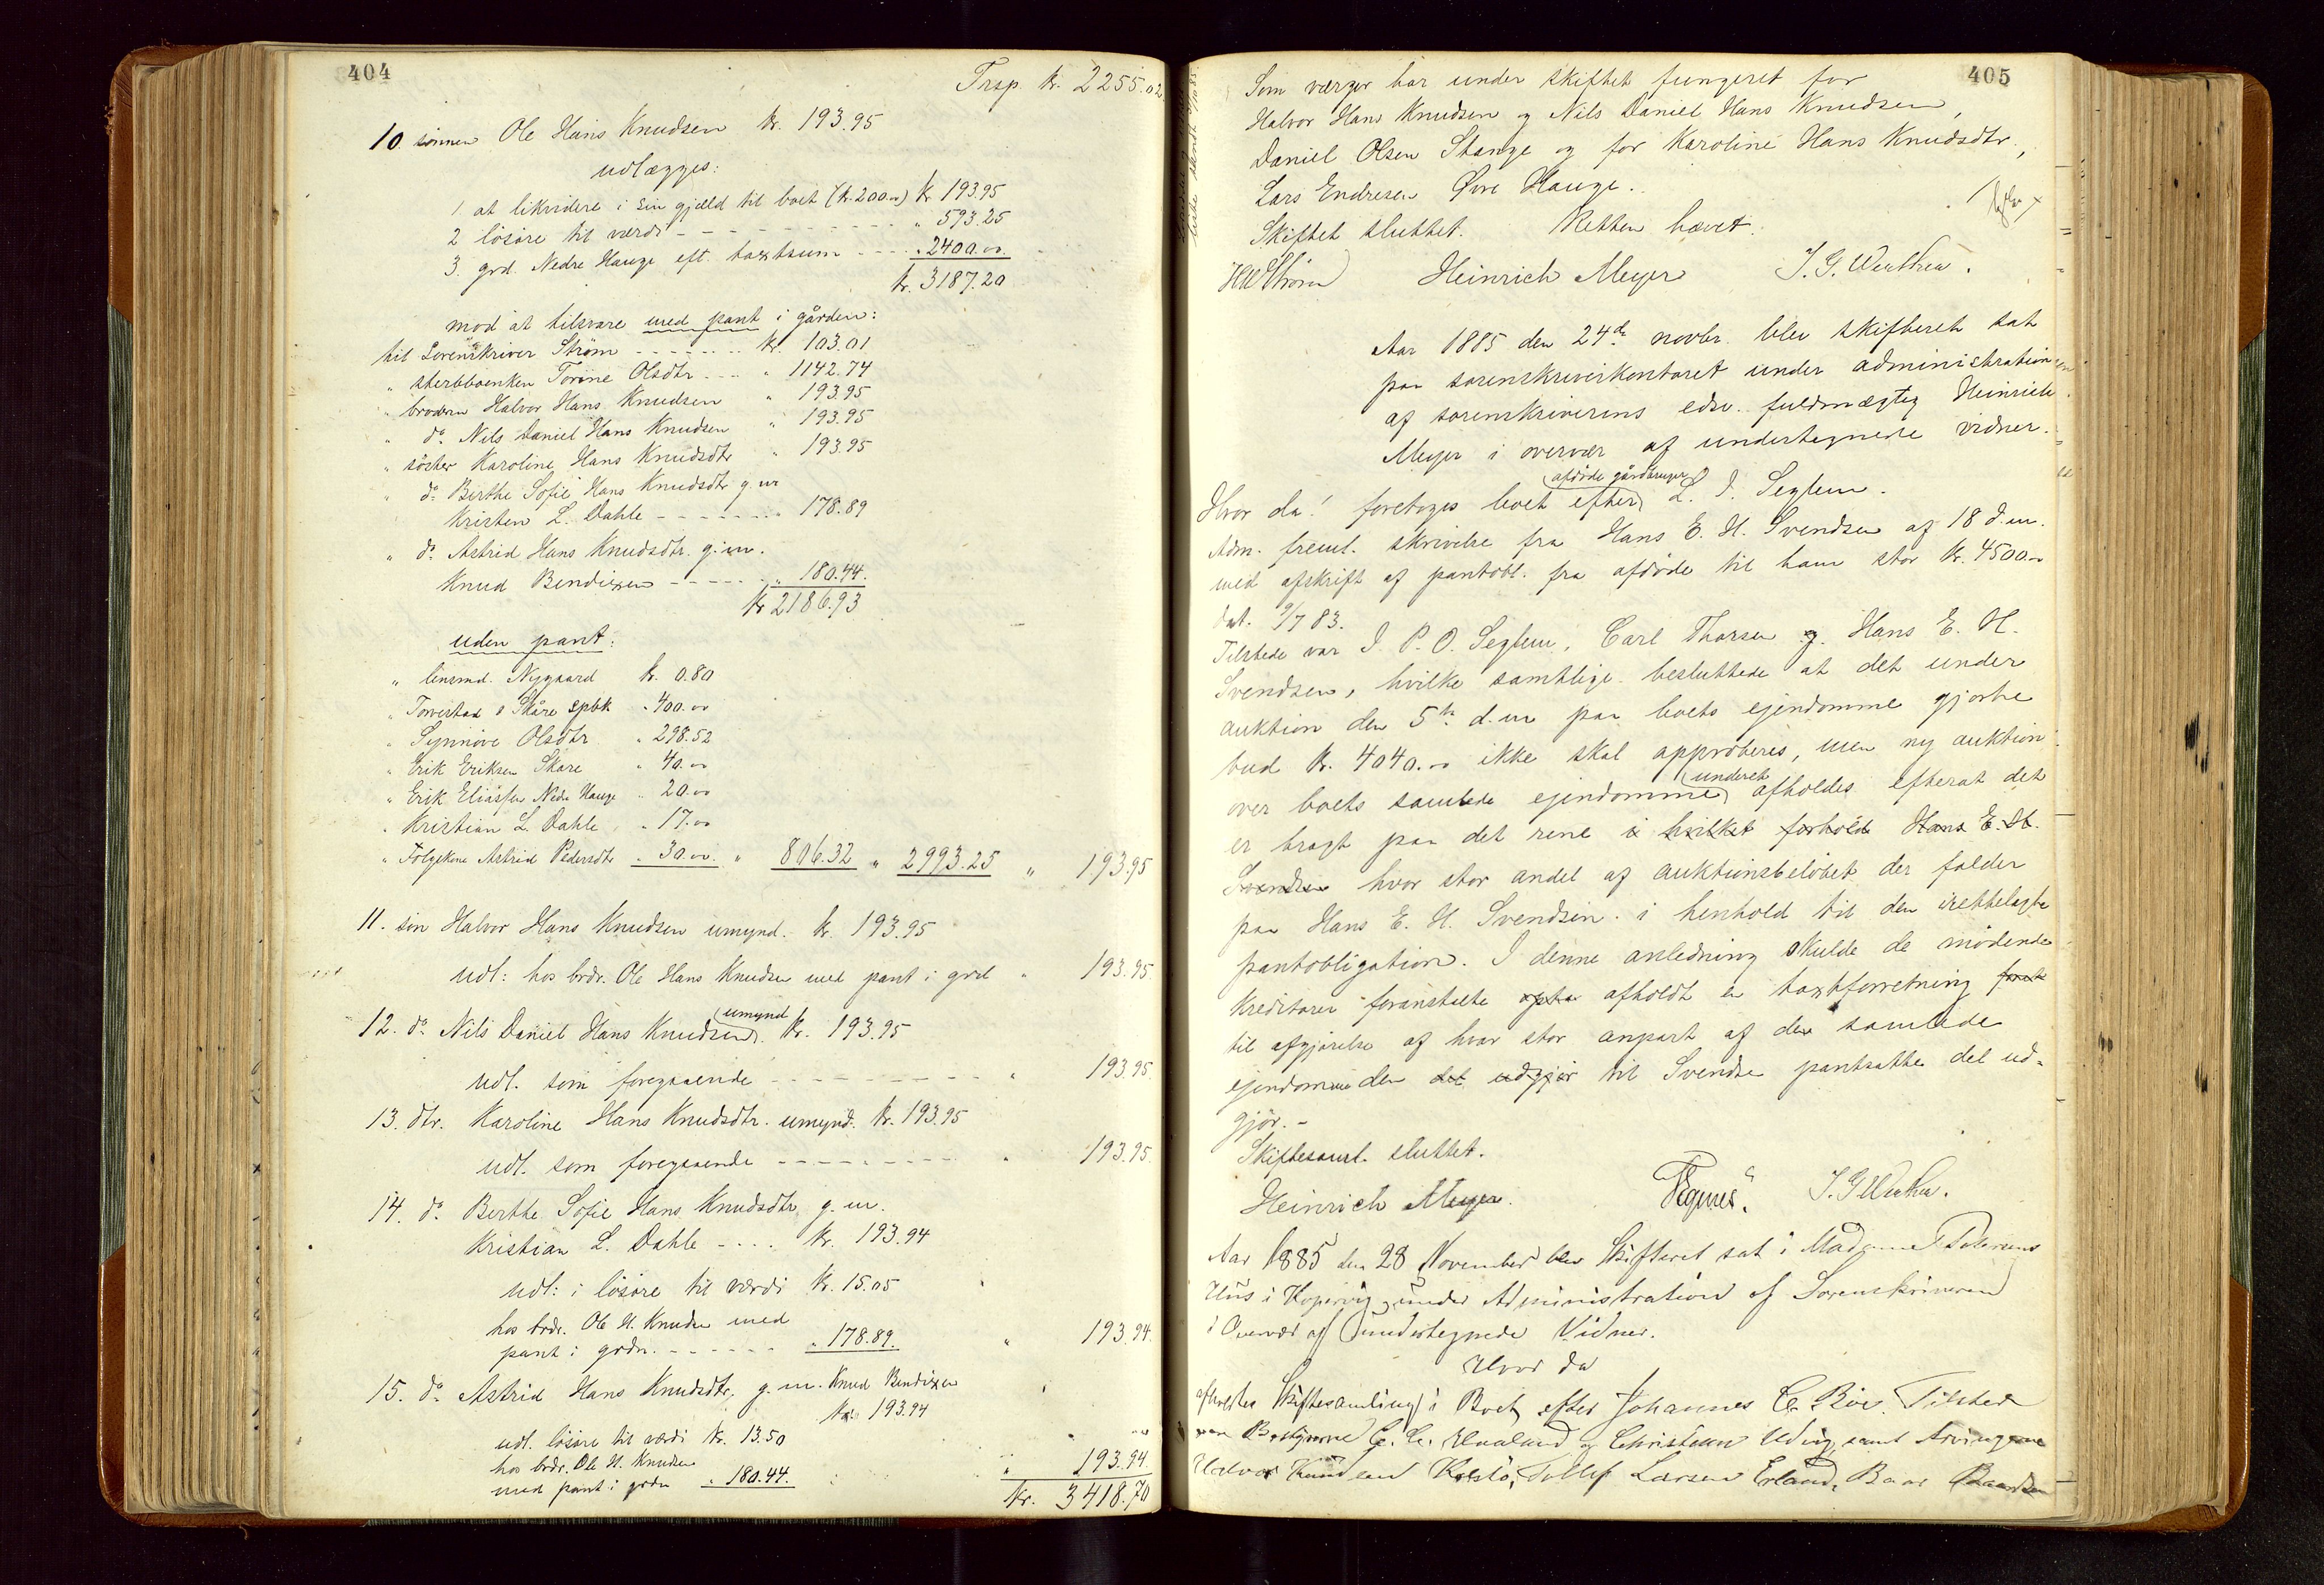 404
Trsp. kr. 2255.02
10. sönnen Ole Hans Knudsen kr. 193.95
udlægges:
1. at likvidere i sin gjæld til boet (kr. 200.00) kr 193.95
2 lösöre til værdi - - - - - - - - - „ 593.25
3. grd. Nedre Hauge eft. taxtsum - - - „ 2400.00
kr. 3187.20
mod at tilsvare med pant i gården:
til Sorenskriver Ström - - - - - - kr. 103.01
„ sterbboenken Torine Olsdtr - - - „ 1142.74
„ brodern Halvor Hans Knudsen „ 193.95
„ do. Nils Daniel Hans Knudsen „ 193.95
„ söster Karoline Hans Knudsdtr „ 193.95
„ do. Berthe Sofie Hans Knudsdtr g. m
Kristen L. Dahle - - - - - - - „ 178.89
„ do. Astrid Hans Knudsdtr. g. m.
Knud Bendixen - - - - - „ 180.44.
kr 2186.93
uden pant:
„ lensmd. Nygaard kr. 0.80
„ Torvestad & Skåre spbk „ 400.00
„ Synnöve Olsdtr „ 298.52
„ Erik Eriksen Skare „ 40.00
„ Erik Eliassen Nedr Hauge „ 20.00
„ Kristian L. Dahle „ 17.00
„ Folgekone Astrid Pedersdtr „ 30.00. „ 806.32 „ 2993.25 „ 193.95
11. sön Halvor Hans Knudsen umynd. kr. 193.95
udl: hos brdr. Ole Hans Knudsen med pant i grd „ 193.95.
umynd
12. do. Nils Daniel Hans Knudsen. kr. 193.95
udl. som foregaaende - - - - - - - - - „ 193.95.
13. dtr. Karoline Hans Knudsdtr. umynd. kr. 193.95
udl. som foregaaende - - - - - - - - „ 193.95.
14. do. Berthe Sofie Hans Knudsdtr g. m.
Kristian L. Dahle - - - - kr. 193.94
udl: i lösöre til værdi kr. 15.05
hos brdr. Ole H. Knudsen med
pant i grdn. - - - - - - „ 178.89. „ 193.94.
15. do. Astrid Hans Knudsdtr, g. m. Knud Bendixen
kr. 193.94
udl. lösöre til værdi kr. 13.50
hos brdr. Ole H. Knudsen
med pant i grdn „ 180.44. „ 193.94.
kr. 3418.70
405
Som værger har under skiftet fungeret for
Halvor Hans Knudsen og Nils Daniel Hans Knudsen,
Daniel Olsen Stange og for Karoline Hans Knudsdtr.,
Lars Endresen Övre Hauge.
Skiftet sluttet. Retten hævet.
Ström Heinrich Meyer J. G. Werthen.
Aar 1885 den 24de novbr. blev skifteret sat
paa sorenskriverkontoret under administration
af sorenskriverens edsv. fuldmægtig Heinrich
Meyer i overvær af undertegnede vidner.
afdöde gårdbruger
Hvor da! foretoges boet efter L. I. Seglem.
Adm. freml. skrivelse fra Hans E. H. Svendsen af 18 d. m.
med afskrift af pantobl. fra afdöde til ham stor kr. 4500.00
dat. 9/7 83.
Tilstede var I. P. O. Seglem, Carl Thorsen og Hans E. H.
Svendsen, hvilke samtlige besluttede at det under
auktion den 5te d. m paa boets ejendomme gjorte
bud kr. 4040.00 ikke skal approberes, men ny auktion
underet
over boets samlede ejendomme afholdes efterat det
er bragt paa det rene i hvilket forhold Hans E. H.
Svendsen hvor stor andel af auktionsbelöbet der falder
paa Hans E. H. Svendsen i henhold til den irettelagte
pantobligation. I denne anledning skulde de mödende
kreditorer foranstalte afholdt en taxtforretning
til afgjörelse af hvor stor anpart af den samlede
ejendom den det udgjör til Svendsen pantsatte del ud-
gjör. -
Skiftesaml. sluttet.
Heinrich Meyer. J. G. Werthen.
Aar 1885 den 28 November blev Skifteret sat i Madame
Hus i Kopervig under Administration af Sorenskriveren
i Overvær af undertegnede Vidner.
Hvor da
afholdtes Skiftesamling i Boet efter Johannes C. Böe. Tilstede
var Bestyrerne C. C. Haaland og Christian samt Arvingerne
Halvor Knudsen Tollef Larsen Erland, Baar Baardsen